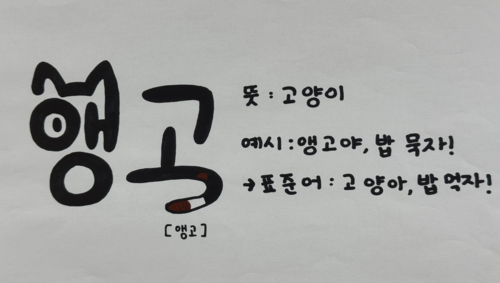 앵고
뜻 : 고양이
예시 : 앵고야, 밥 묵자!
→ 표준어 : 고양아, 밥 먹자!
[앵고]